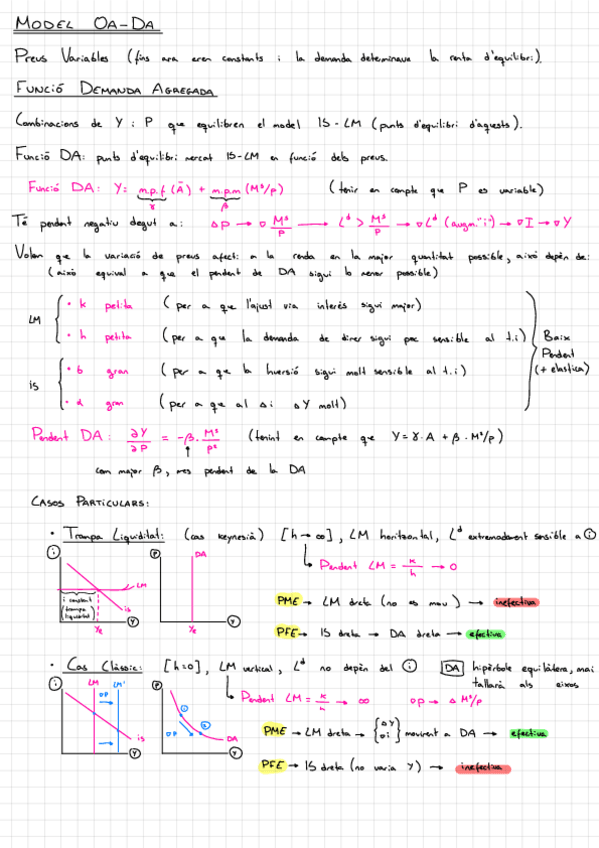 MODEL OA-DA
Preus Variables (fins ara eren constants i la demanda determinava la renta d'equilibri).
FUNCIÓ DEMANDA AGREGADA
Combinacions de Y i P que equilibren el model IS-LM (punts d'equilibri d'aquests).
Funció DA: punts d'equilibri mercat IS-LM en funció dels preus.
Funció DA: Y= m.p.f (Ā) + m.p.m (Mˢ/p) (tenir en compte que P es variable)
γ β
Té pendent negatiu degut a: ΔP → ∇ Mˢ/P → Lᵈ > Mˢ/P → ∇Lᵈ (augm."i") → ∇I → ∇Y
Volem que la variació de preus afecti a la renda en la major quantitat possible, això depèn de:
(això equival a que el pendent de DA sigui lo menor possible)
LM
• k petita (per a que l'ajust via interès sigui major)
• h petita (per a que la demanda de diner sigui poc sensible al t.i)
IS
• b gran (per a que la Inversió sigui molt sensible al t.i)
• α gran (per a que al Δi ΔY molt)
Baix
Pendent
(+ elastica)
Pendent DA: ∂Y/∂P = -β · Mˢ/p² (tenint en compte que Y=γ·A + β·Mˢ/p)
com major β, mes pendent de la DA
CASOS PARTICULARS:
• Trampa Liquiditat: (cas keynesià) [h→∞], LM horitzontal, Lᵈ extremadament sensible a i
Pendent LM = k/h → 0
i
LM
i constant
(trampa
liquiditat)
is
Yₑ
Y
P
DA
Yₑ
Y
PME → LM dreta (no es mou) → inefectiva
PFE → IS dreta → DA dreta → efectiva
• Cas Clàssic: [h=0], LM vertical, Lᵈ no depèn del i DA hipèrbole equilàtera, mai
tallarà als eixos
Pendent LM = k/h → ∞ ∇P → Δ Mˢ/p
i
LM
LM'
∇P
is
Y
P
1
2
∇P
DA
Y
PME → LM dreta → {ΔY ∇i} moviment a DA → efectiva
PFE → IS dreta (no varia Y) → inefectiva